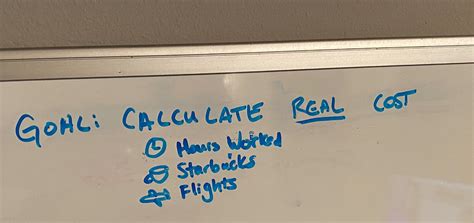 GOAL: CALCULATE REAL COST
Hours Worked
Starbucks
Flights